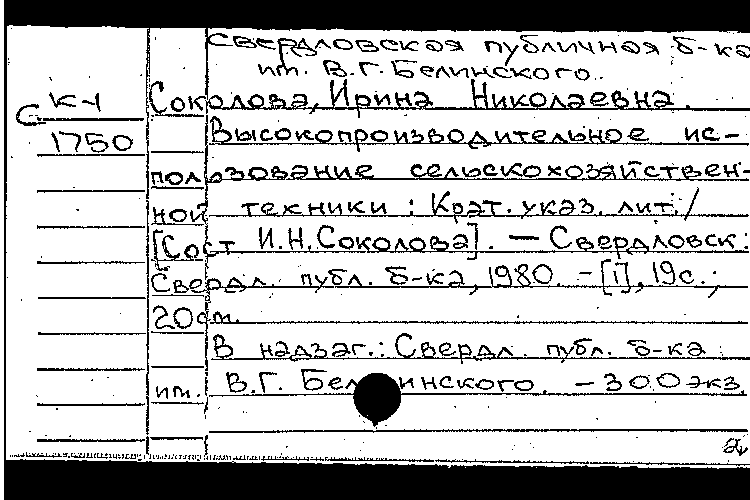 Свердловская публичная б-ка
им. В.Г. Белинского.
К-1
С
1750
Соколова, Ирина Николаевна.
Высокопроизводительное ис-
пользование сельскохозяйствен-
ной техники : Крат. указ. лит. /
[Сост И.Н. Соколова]. — Свердловск :
Свердл. публ. б-ка, 1980. - [1], 19с. ;
20см.
В надзаг.: Свердл. публ. б-ка
им. В.Г. Белинского. - 300экз.